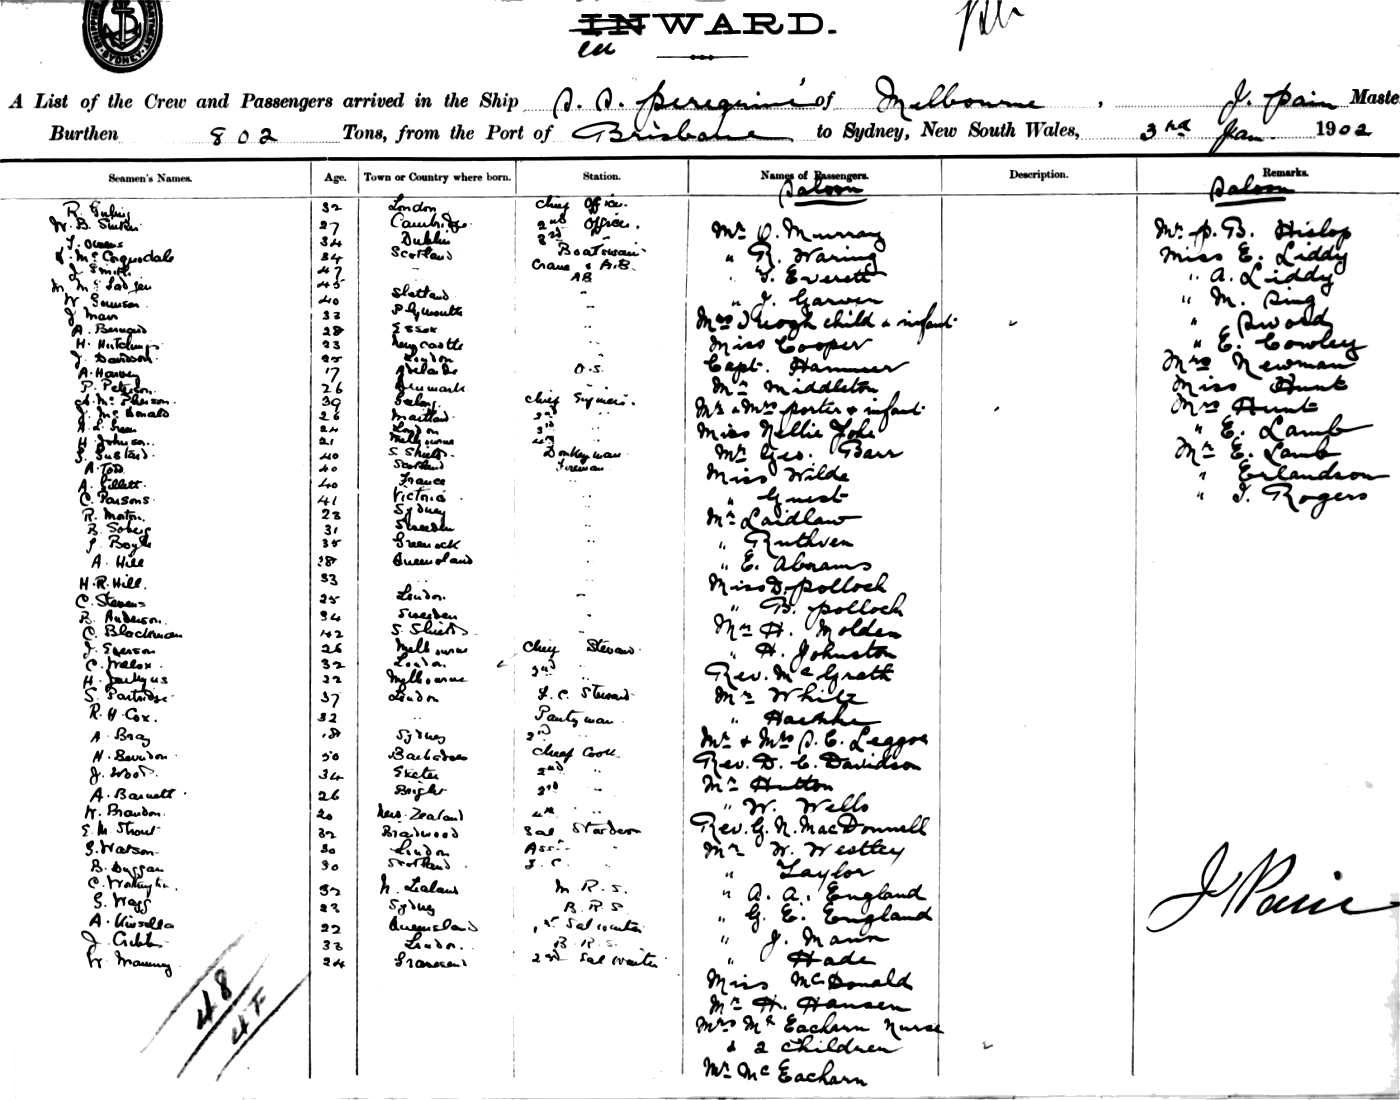 INWARD.
A List of the Crew and Passengers arrived in the Ship S. S. Peregrine of Melbourne, J. Pain Maste
Burthen 802 Tons, from the Port of Brisbane to Sydney, New South Wales, 3rd Jan 1902
Seamen's Names. Age. Town or Country where born. Station. Names of Passengers. Description. Remarks.
Saloon Saloon
32 London Chief Officer
27 Cambridge 2nd Officer
34 Dublin 3rd
34 Scotland Boatswain
J. Smith 47
45 AB
40 Shetland
J. Mann 33 Plymouth
A. Bernard 28 Essex
H. Hutchings 23 Newcastle
J. Davidson 25 London
A. Harvey 17 Adelaide O.S.
P. Peterson 26 Denmark
A. McPherson 39 Chief Engineer
J. McDonald 26 Maitland 2nd
24 London 3rd
H. Johnson 21 Melbourne 4th
40 S. Shields Donkeyman
A. Todd 40 Scotland Fireman
A. Gillett 40 France
C. Parsons 41 Victoria
R. Morton 23 Sydney
31 Sweden
J. Boyle 35 Greenock
A. Hill 28 Queensland
H. R. Hill 33
C. Stevens 25 London
B. Anderson 34 Sweden
C. Blackman 42 S. Shields
26 Melbourne Chief Steward
C. Willox 32 London 2nd
32 Melbourne
S. Partridge 37 London F. C. Steward
R. H. Cox. 32 Pantryman
A. Bray 18 Sydney 2nd
50 Barbadoes Chief Cook
J. Wood 34 Exeter 2nd
A. Barnett 26 Bright 3rd
W. Brandon 20 New Zealand 4th
E. M. Stewart 32 Braidwood Sal Stewardess
G. Watson 30 London Asst
B. Duggan 30 Scotland
32 N. Zealand M. R. S.
G. Wagg 23 Sydney B. R. S.
A. Kinsella 22 Queensland 1st Sal waiter
33 London B. R. S.
W. Manning 24 Gravesend 2nd Sal waiter
48
Mr O. Murray
" R. Waring
" T. Everett
" J. Garven
Mrs Keogh child & infant
Miss Cooper
Capt. Hammer
Mr Middleton
Mr & Mrs Porter & infant
Miss Nellie
Mr Geo. Barr
Miss Wilde
" Guest
Mr Laidlaw
" Ruthven
" E. Abrams
Miss D. Pollock
" B. Pollock
Mr H. Molden
" H. Johnston
Rev. McGrath
Mr White
"
Mr & Mrs S. C. Leggoe
Rev. D. C. Davidson
Mr Hutton
" W. Wells
Rev. G. N. MacDonnell
Mr W. Westley
" Taylor
" A. A. England
" G. E. England
" J. Mann
" Hade
Miss McDonald
Mr H. Hansen
Mrs McEacharn Nurse
& 2 children
Mr McEacharn
Mr P. B. Hislop
Miss E. Liddy
" A. Liddy
" M. Sing
" Sword
" E. Cowley
Mrs Newman
Miss Hunt
Mrs Hunt
" E. Lamb
Mr E. Lamb
" Erlandson
" T. Rogers
J Pain